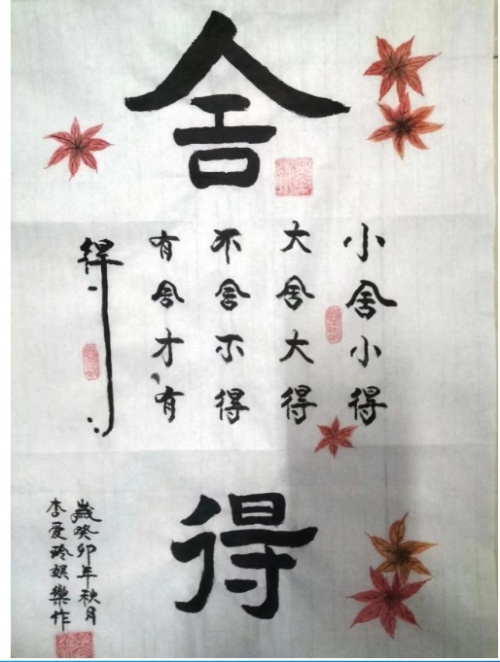 舍
小舍小得
大舍大得
不舍不得
有舍才有
得
得
歲癸卯年秋月
李爱玲娱樂作